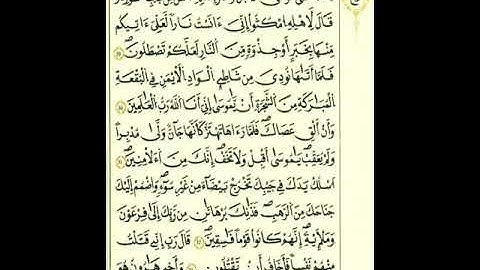 قَالَ لِأَهْلِهِ ٱمْكُثُوٓا۟ إِنِّىٓ ءَانَسْتُ نَارًا لَّعَلِّىٓ ءَاتِيكُم
مِّنْهَا بِخَبَرٍ أَوْ جَذْوَةٍ مِّنَ ٱلنَّارِ لَعَلَّكُمْ تَصْطَلُونَ ٢٩
فَلَمَّآ أَتَىٰهَا نُودِىَ مِن شَٰطِئِ ٱلْوَادِ ٱلْأَيْمَنِ فِى ٱلْبُقْعَةِ
ٱلْمُبَٰرَكَةِ مِنَ ٱلشَّجَرَةِ أَن يَٰمُوسَىٰٓ إِنِّىٓ أَنَا ٱللَّهُ رَبُّ ٱلْعَٰلَمِينَ ٣٠
وَأَنْ أَلْقِ عَصَاكَ ۖ فَلَمَّا رَءَاهَا تَهْتَزُّ كَأَنَّهَا جَآنٌّ وَلَّىٰ مُدْبِرًا
وَلَمْ يُعَقِّبْ ۚ يَٰمُوسَىٰٓ أَقْبِلْ وَلَا تَخَفْ ۖ إِنَّكَ مِنَ ٱلْءَامِنِينَ ٣١
ٱسْلُكْ يَدَكَ فِى جَيْبِكَ تَخْرُجْ بَيْضَآءَ مِنْ غَيْرِ سُوٓءٍ وَٱضْمُمْ إِلَيْكَ
جَنَاحَكَ مِنَ ٱلرَّهْبِ ۖ فَذَٰنِكَ بُرْهَٰنَانِ مِن رَّبِّكَ إِلَىٰ فِرْعَوْنَ
وَمَلَإِي۟هِۦٓ ۚ إِنَّهُمْ كَانُوا۟ قَوْمًا فَٰسِقِينَ ٣٢ قَالَ رَبِّ إِنِّى قَتَلْتُ
مِنْهُمْ نَفْسًا فَأَخَافُ أَن يَقْتُلُونِ ٣٣ وَأَخِى هَٰرُونُ هُوَ